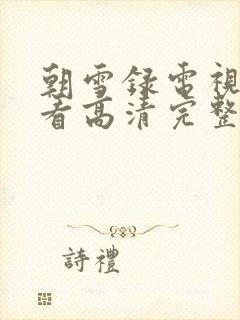 朝雪録電視
看高清完整
詩禮